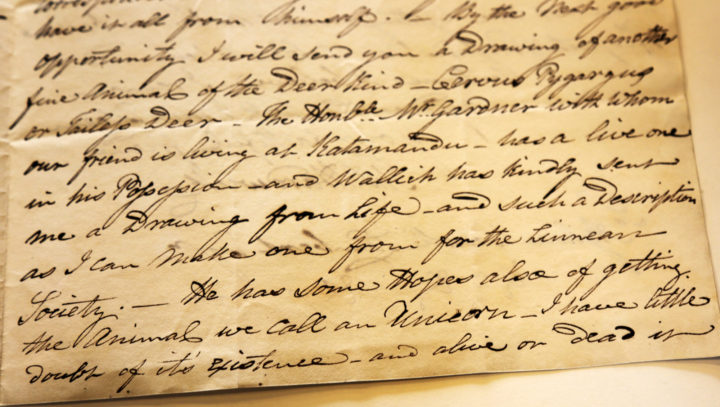 have it all from himself. — By the Next good
opportunity I will send you a Drawing of another
fine Animal of the Deer Kind — Cervus Pygargus
or Tailess Deer — The Honble. Mr. Gardner with whom
our friend is living at Katamandu — has a live one
in his Possession — and Wallich has kindly sent
me a Drawing from Life — and such a Description
as I can make one from for the Linnean
Society. — He has some Hopes also of getting
the Animal we call an Unicorn — I have little
doubt of it's Existence — and alive or dead it